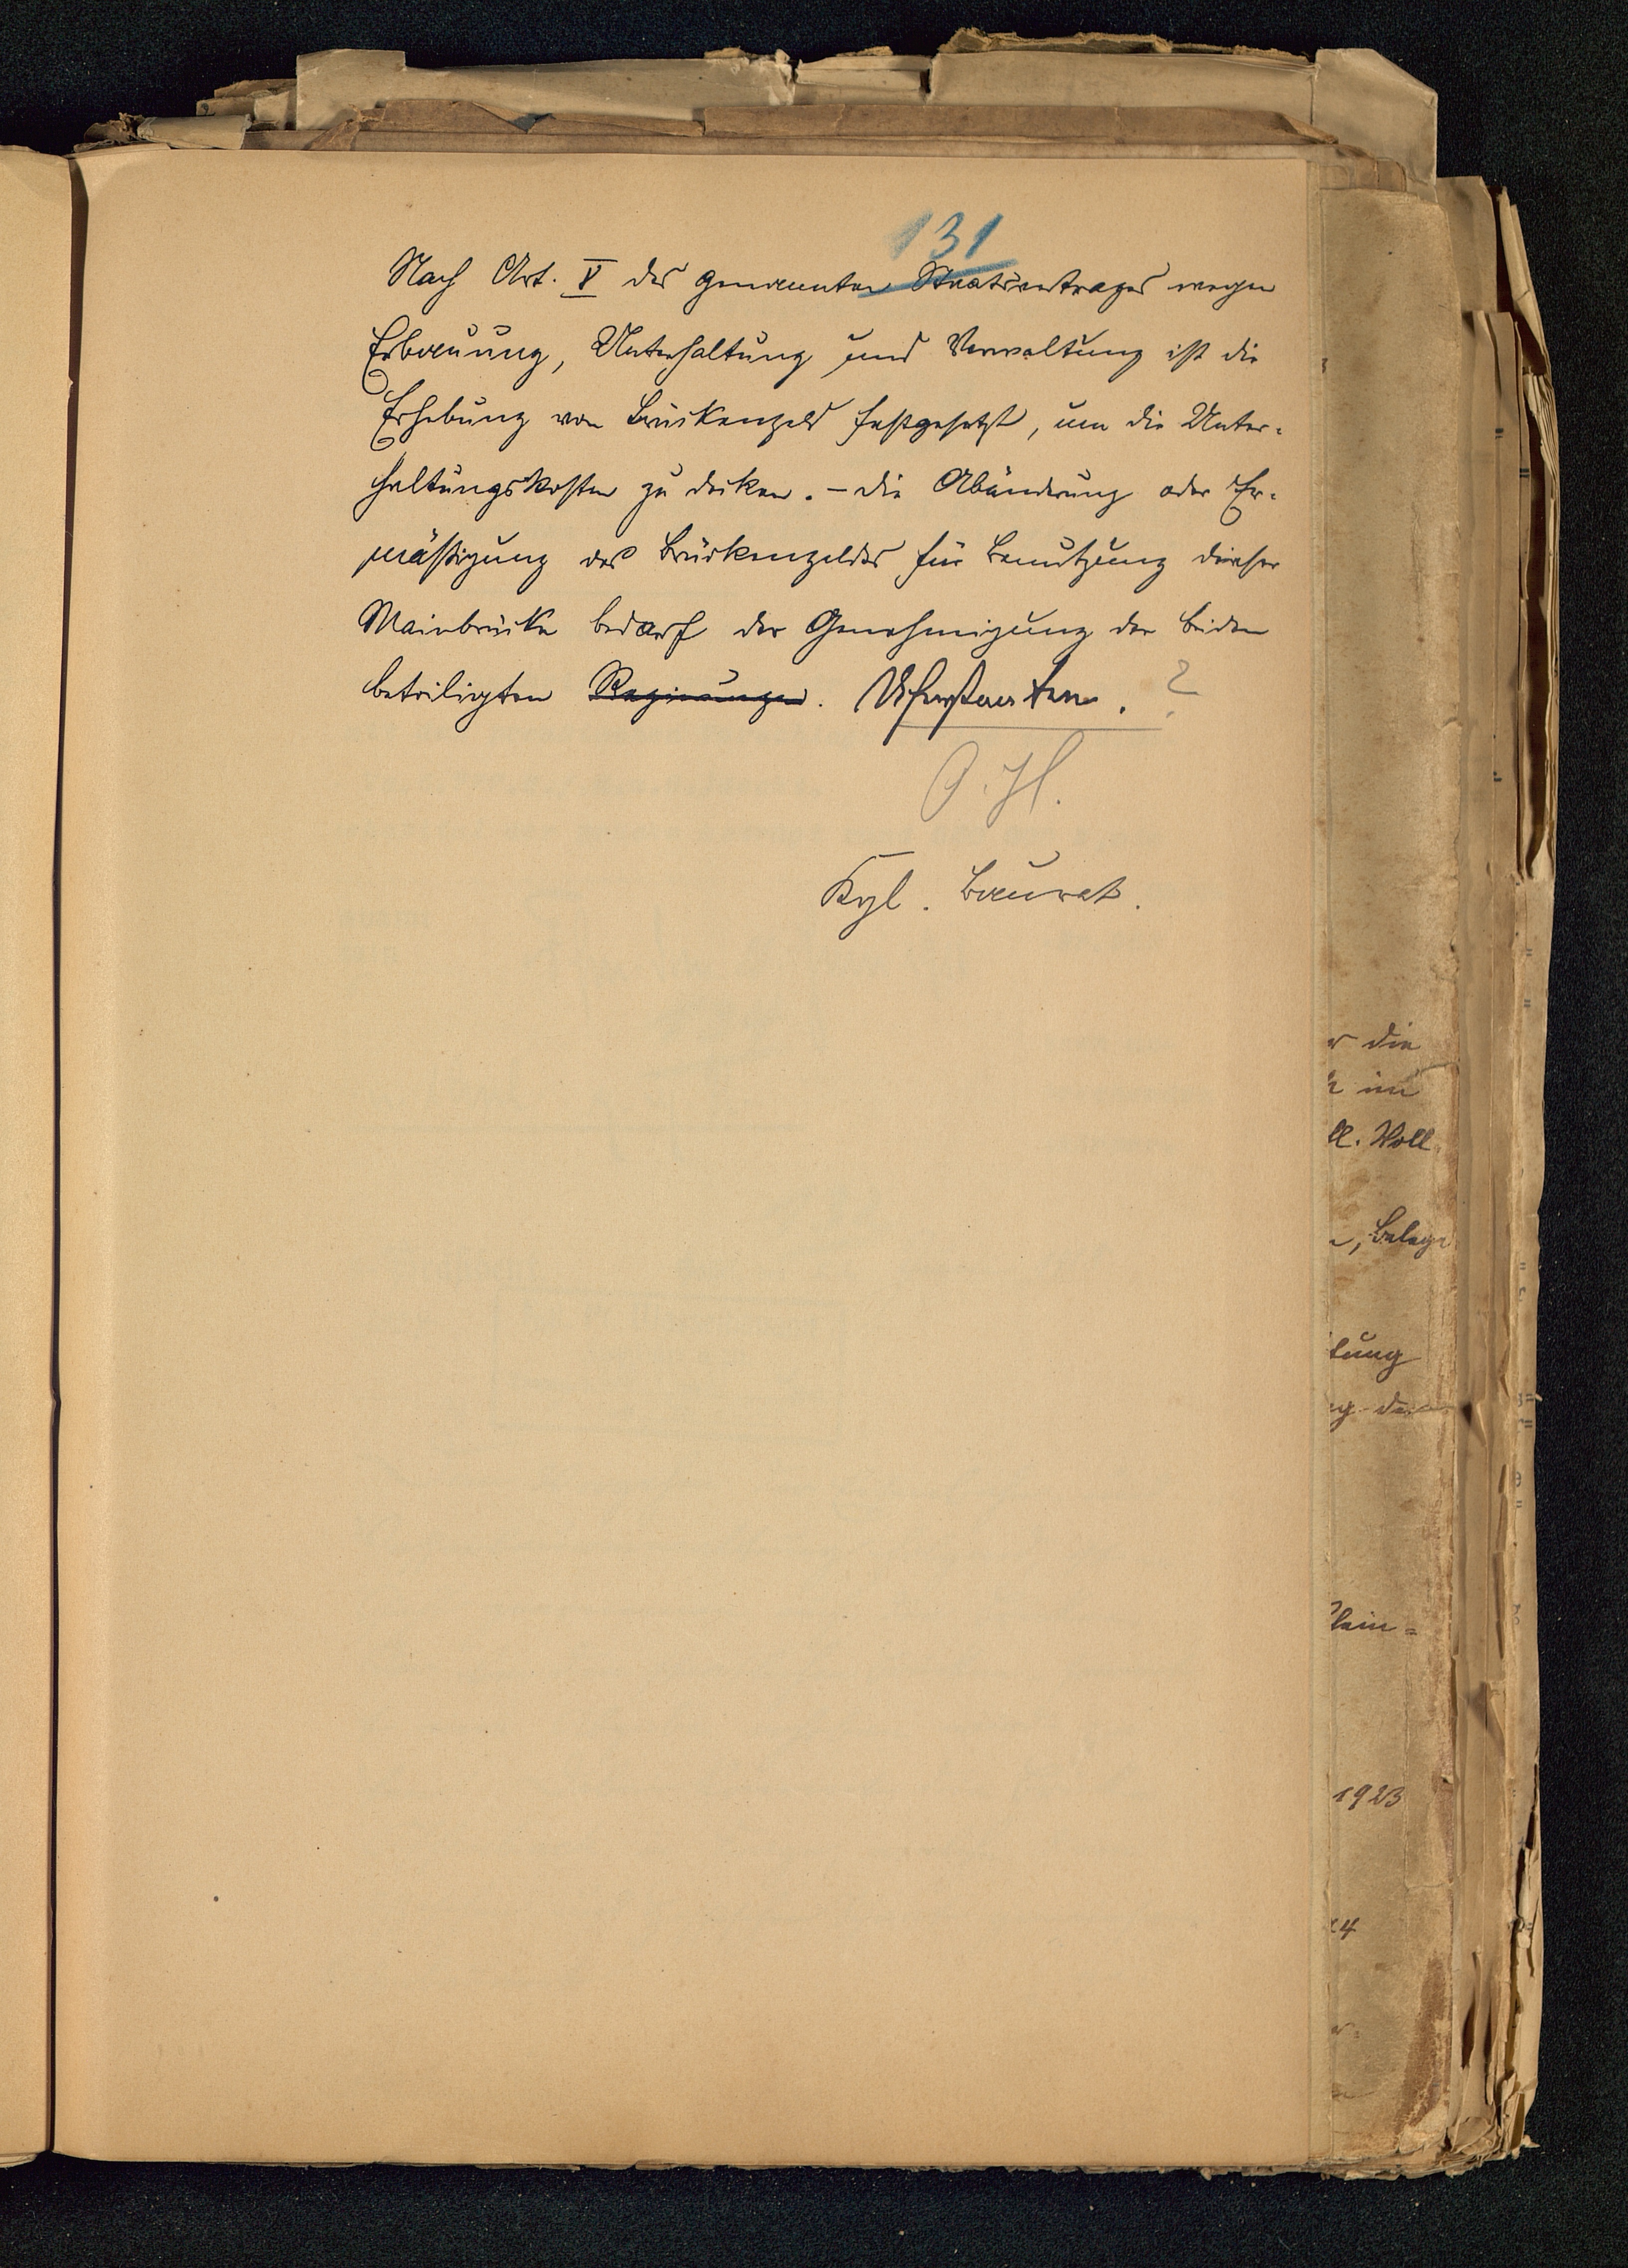 131
Nach Art. V des genannten Staatsvertrages wegen
Erbauung, Unterhaltung und Verwaltung ist die
Erhebung von Brückengeld festgesetzt, um die Unter-
haltungskosten zu decken. – Die Abänderung oder Er-
mäßigung des Brückengeldes für Benutzung dieser
Mainbrücke bedarf der Genehmigung der beiden
beteiligten Regierungen. Uferstaaten. ?
Kgl. Baurat.
die
im
Voll
, Belege
tung
1923